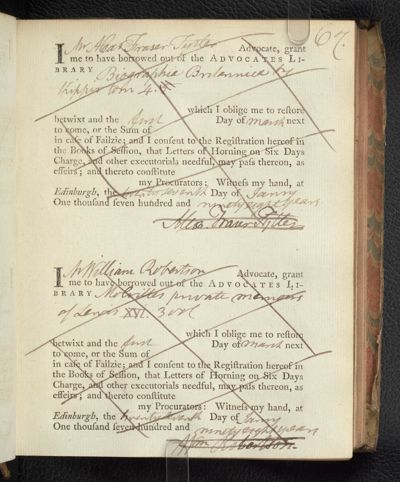 67.
I Mr Alexr Fraser Tytler Advocate, grant
me to have borrowed out of the ADVOCATES LI-
BRARY Biographia Britannica by
Kippis tom 4.
which I oblige me to restore
betwixt and the first Day of March next
to come, or the Sum of
in case of Failzie; and I consent to the Registration hereof in
the Books of Session, that Letters of Horning on Six Days
Charge, and other executorials needful, may pass thereon, as
effeirs; and thereto constitute
my Procurators: Witness my hand, at
Edinburgh, the twenty seventh Day of Janry
One thousand seven hundred and ninety eight years
Alexr Fraser Tytler
I Mr William Robertson Advocate, grant
me to have borrowed out of the ADVOCATES LI-
BRARY Moleviles private memoirs
of Lewis XVI. 3 vol
which I oblige me to restore
betwixt and the first Day of March next
to come, or the Sum of
in case of Failzie; and I consent to the Registration hereof in
the Books of Session, that Letters of Horning on Six Days
Charge, and other executorials needful, may pass thereon, as
effeirs; and thereto constitute
my Procurators: Witness my hand, at
Edinburgh, the twenty seventh Day of Janry
One thousand seven hundred and ninety eight years
Wm Robertson.